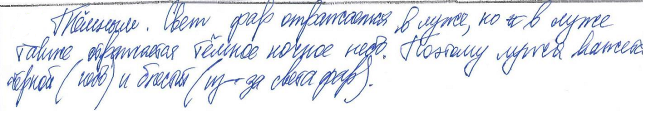 Свет фар отражается в луже, но в луже
также отражается тёмное ночное небо. Поэтому лужа кажется
чёрной (небо) и блестит (из-за света фар).